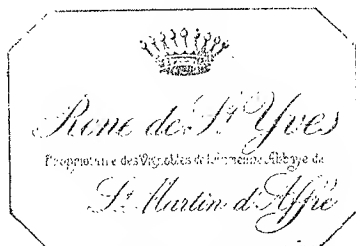 Rone de St Yves
Propriétaire des Vignobles de l'ancienne Abbaye de
St Martin d'Affre